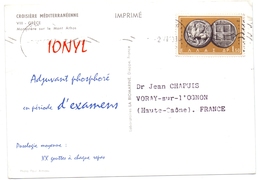 CROISIÈRE MÉDITERRANÉENNE
VIII - GRÈCE
IMPRIMÉ
IONYL
Adjuvant phosphoré
en période d'examens
Posologie moyenne :
XX gouttes à chaque repas
Dr Jean CHAPUIS
VORAY-sur-L'OGNON
(Haute-Saône). FRANCE